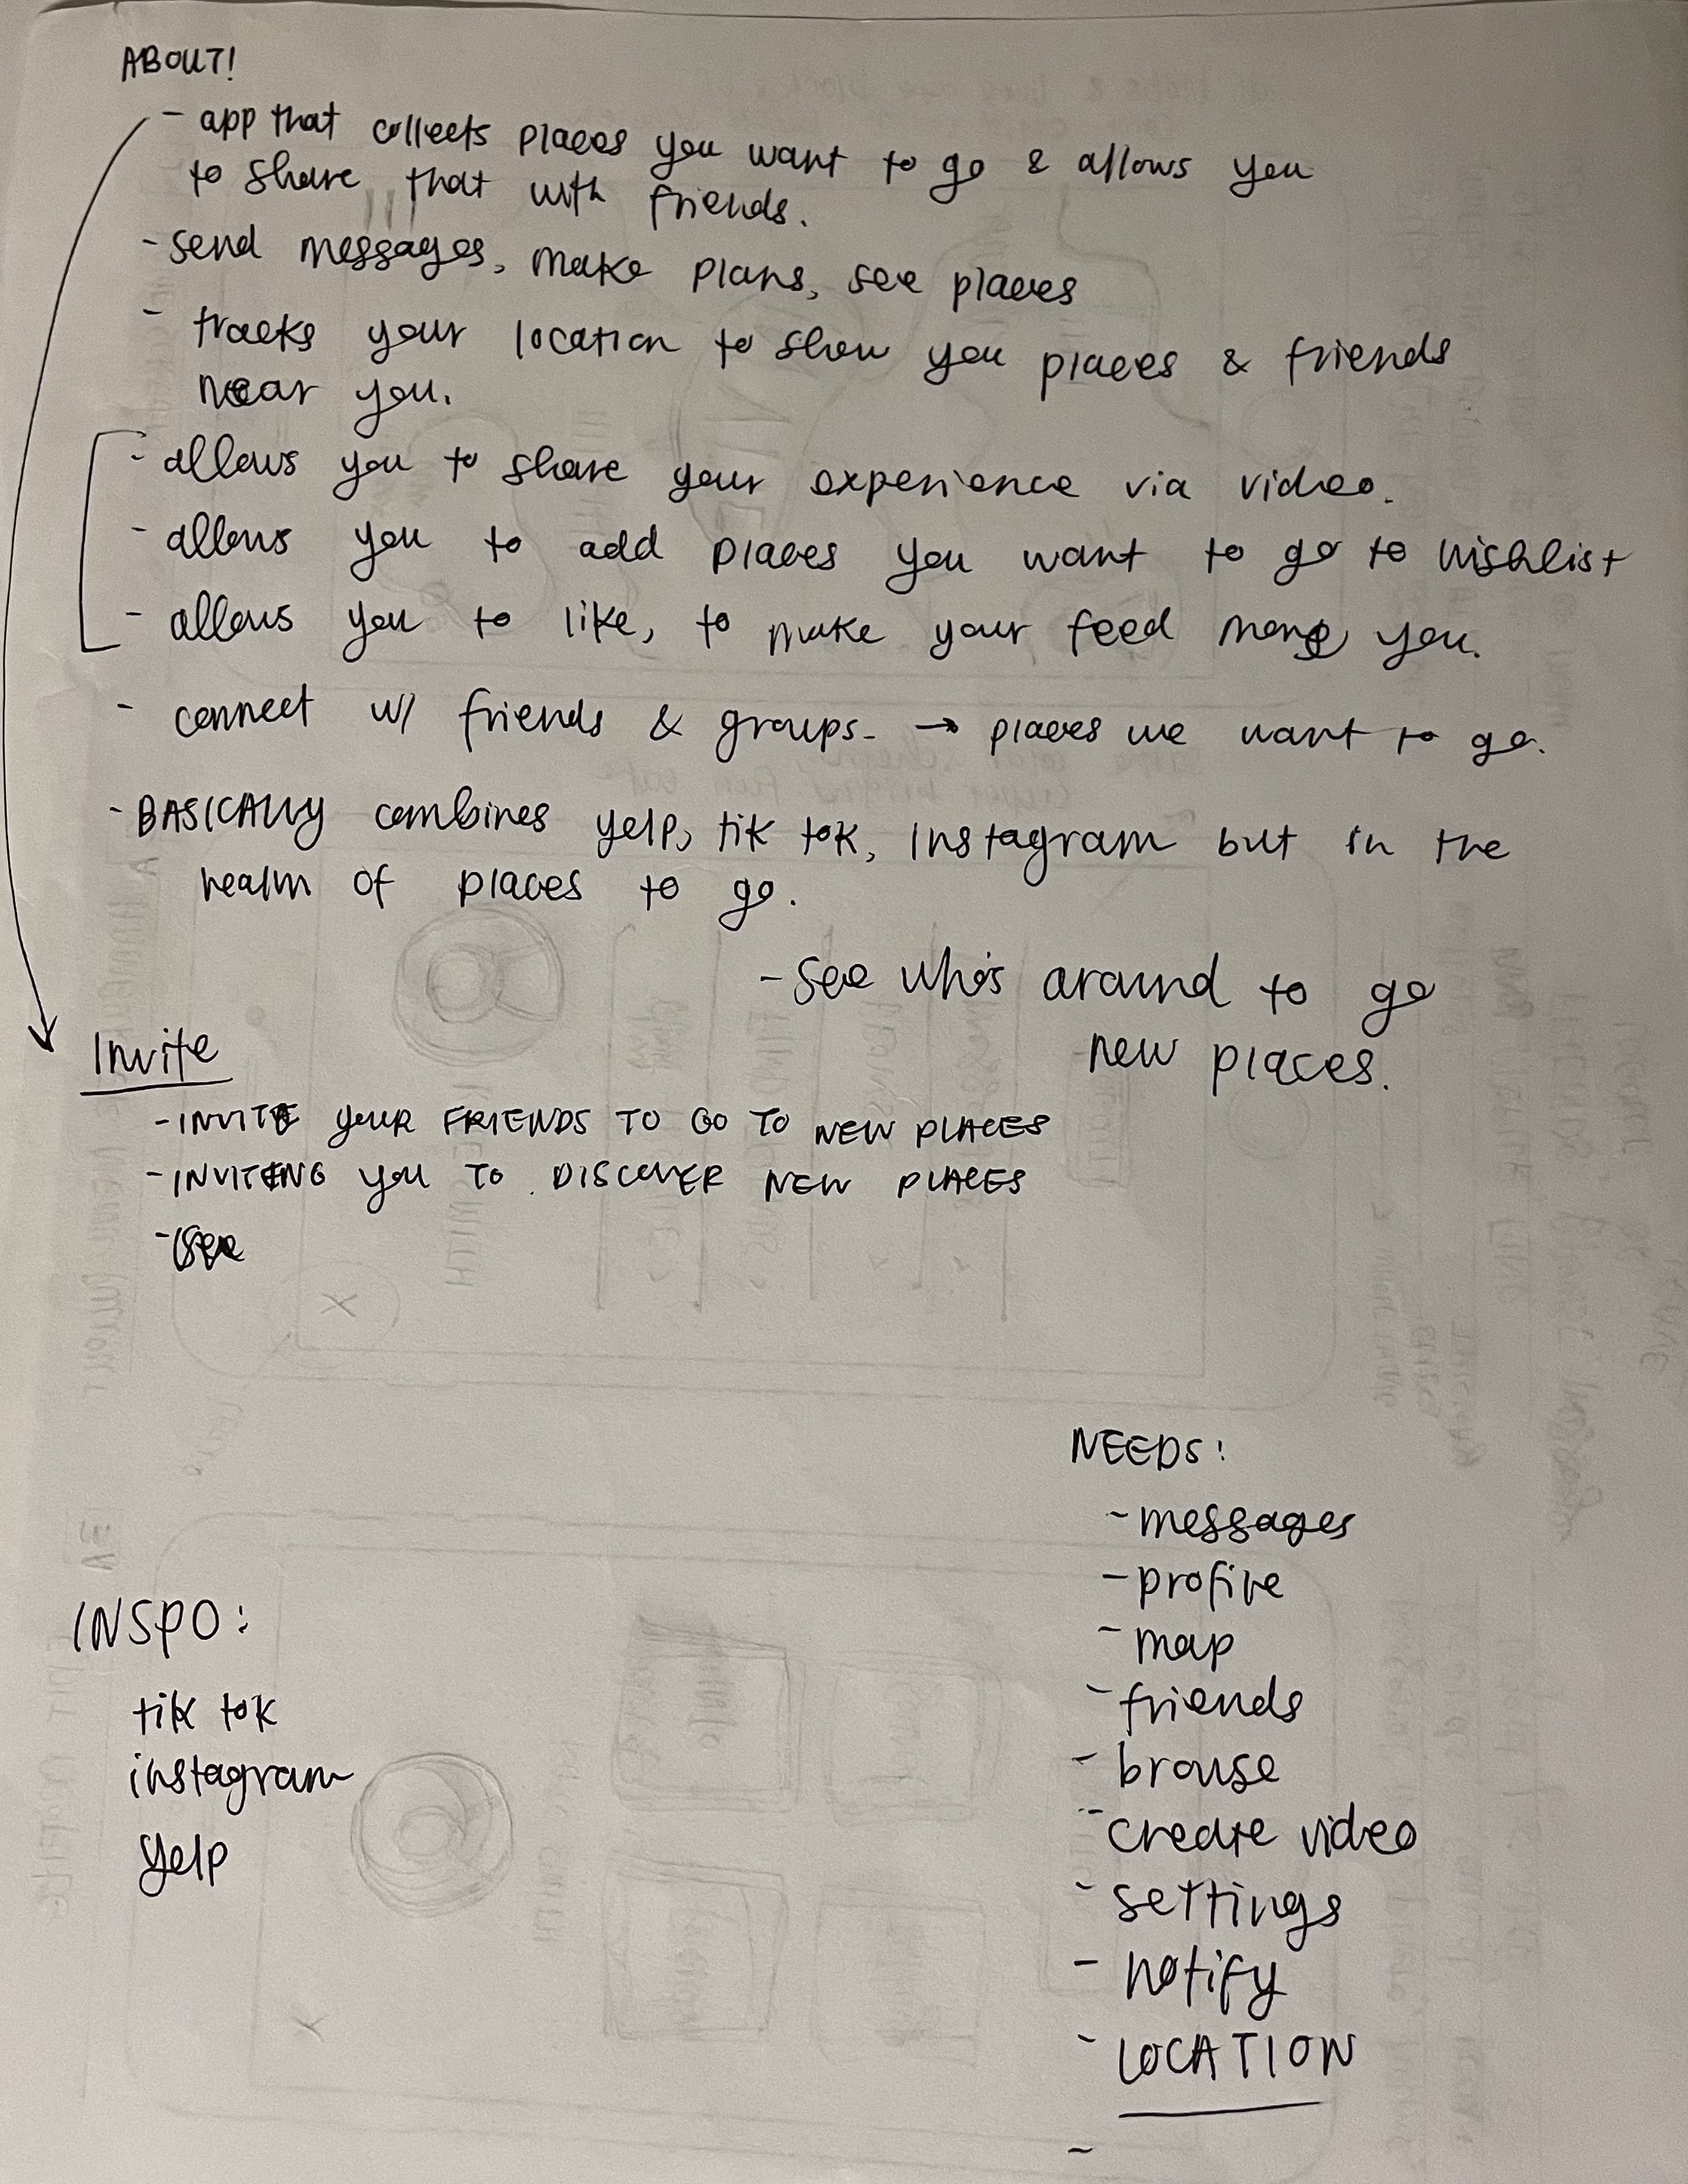 ABOUT!
- app that collects places you want to go & allows you
to share that with friends.
- send messages, make plans, see places
- tracks your location to show you places & friends
near you.
- allows you to share your experience via video.
- allows you to add places you want to go to wishlist
- allows you to like, to make your feed more you.
- connect w/ friends & groups. → places we want to go.
- BASICALLY combines yelp, tik tok, instagram but in the
realm of places to go.
- see who's around to go
new places.
Invite
- INVITE YOUR FRIENDS TO GO TO NEW PLACES
- INVITING YOU TO DISCOVER NEW PLACES
- see
INSPO:
tik tok
instagram
yelp
NEEDS:
- messages
- profile
- map
- friends
- browse
- create video
- settings
- notify
- LOCATION
-